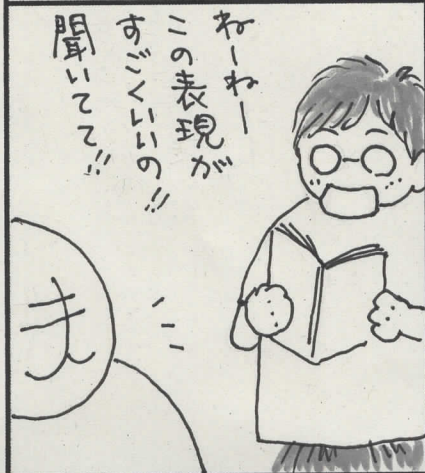 ねーねー
この表現が
すごくいいの!!
聞いてて!!
ま